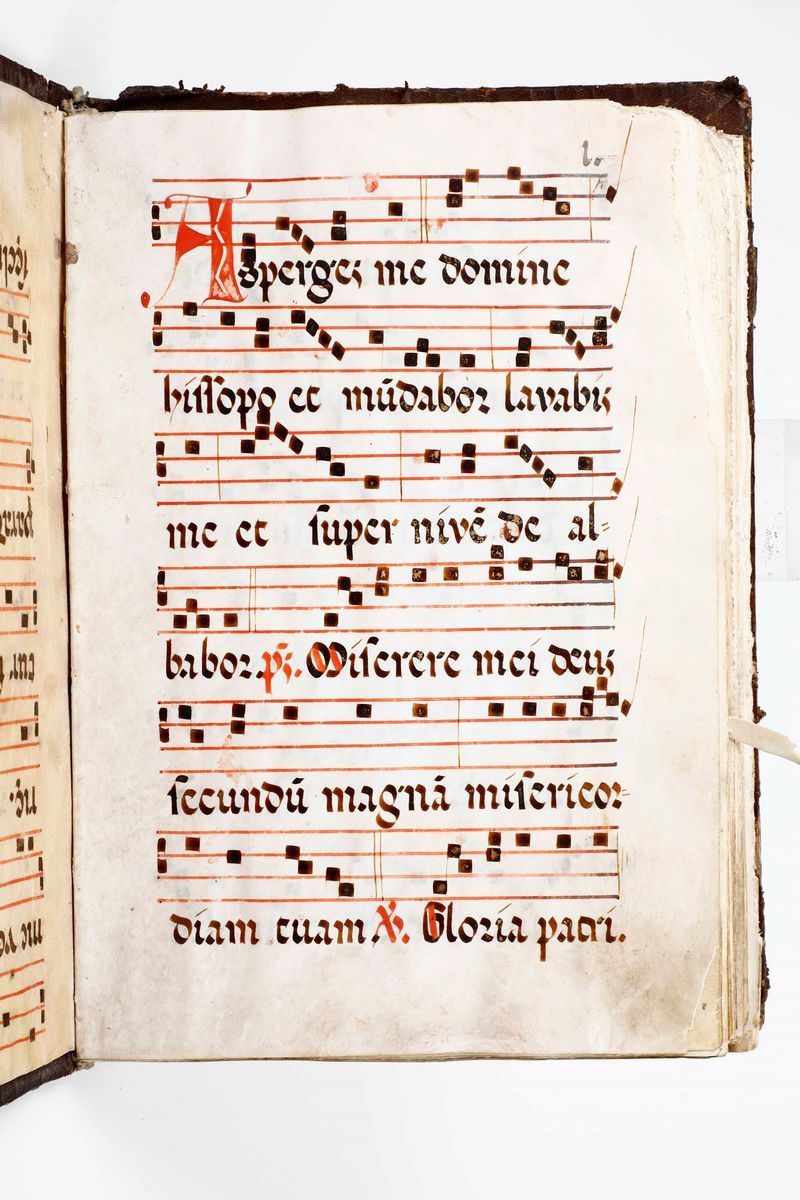 1.
Asperges me domine
hissopo et mũdabor lavabis
me et super nivẽ de al-
babor. ps. Miserere mei deus
secundũ magnã misericor-
diam tuam ℣. Gloria patri.